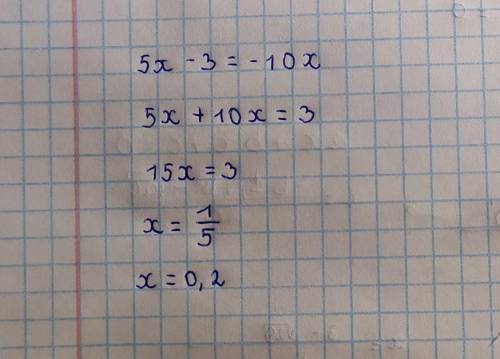 5x - 3 = - 10x
5x + 10x = 3
15x = 3
x = 1/5
x = 0,2